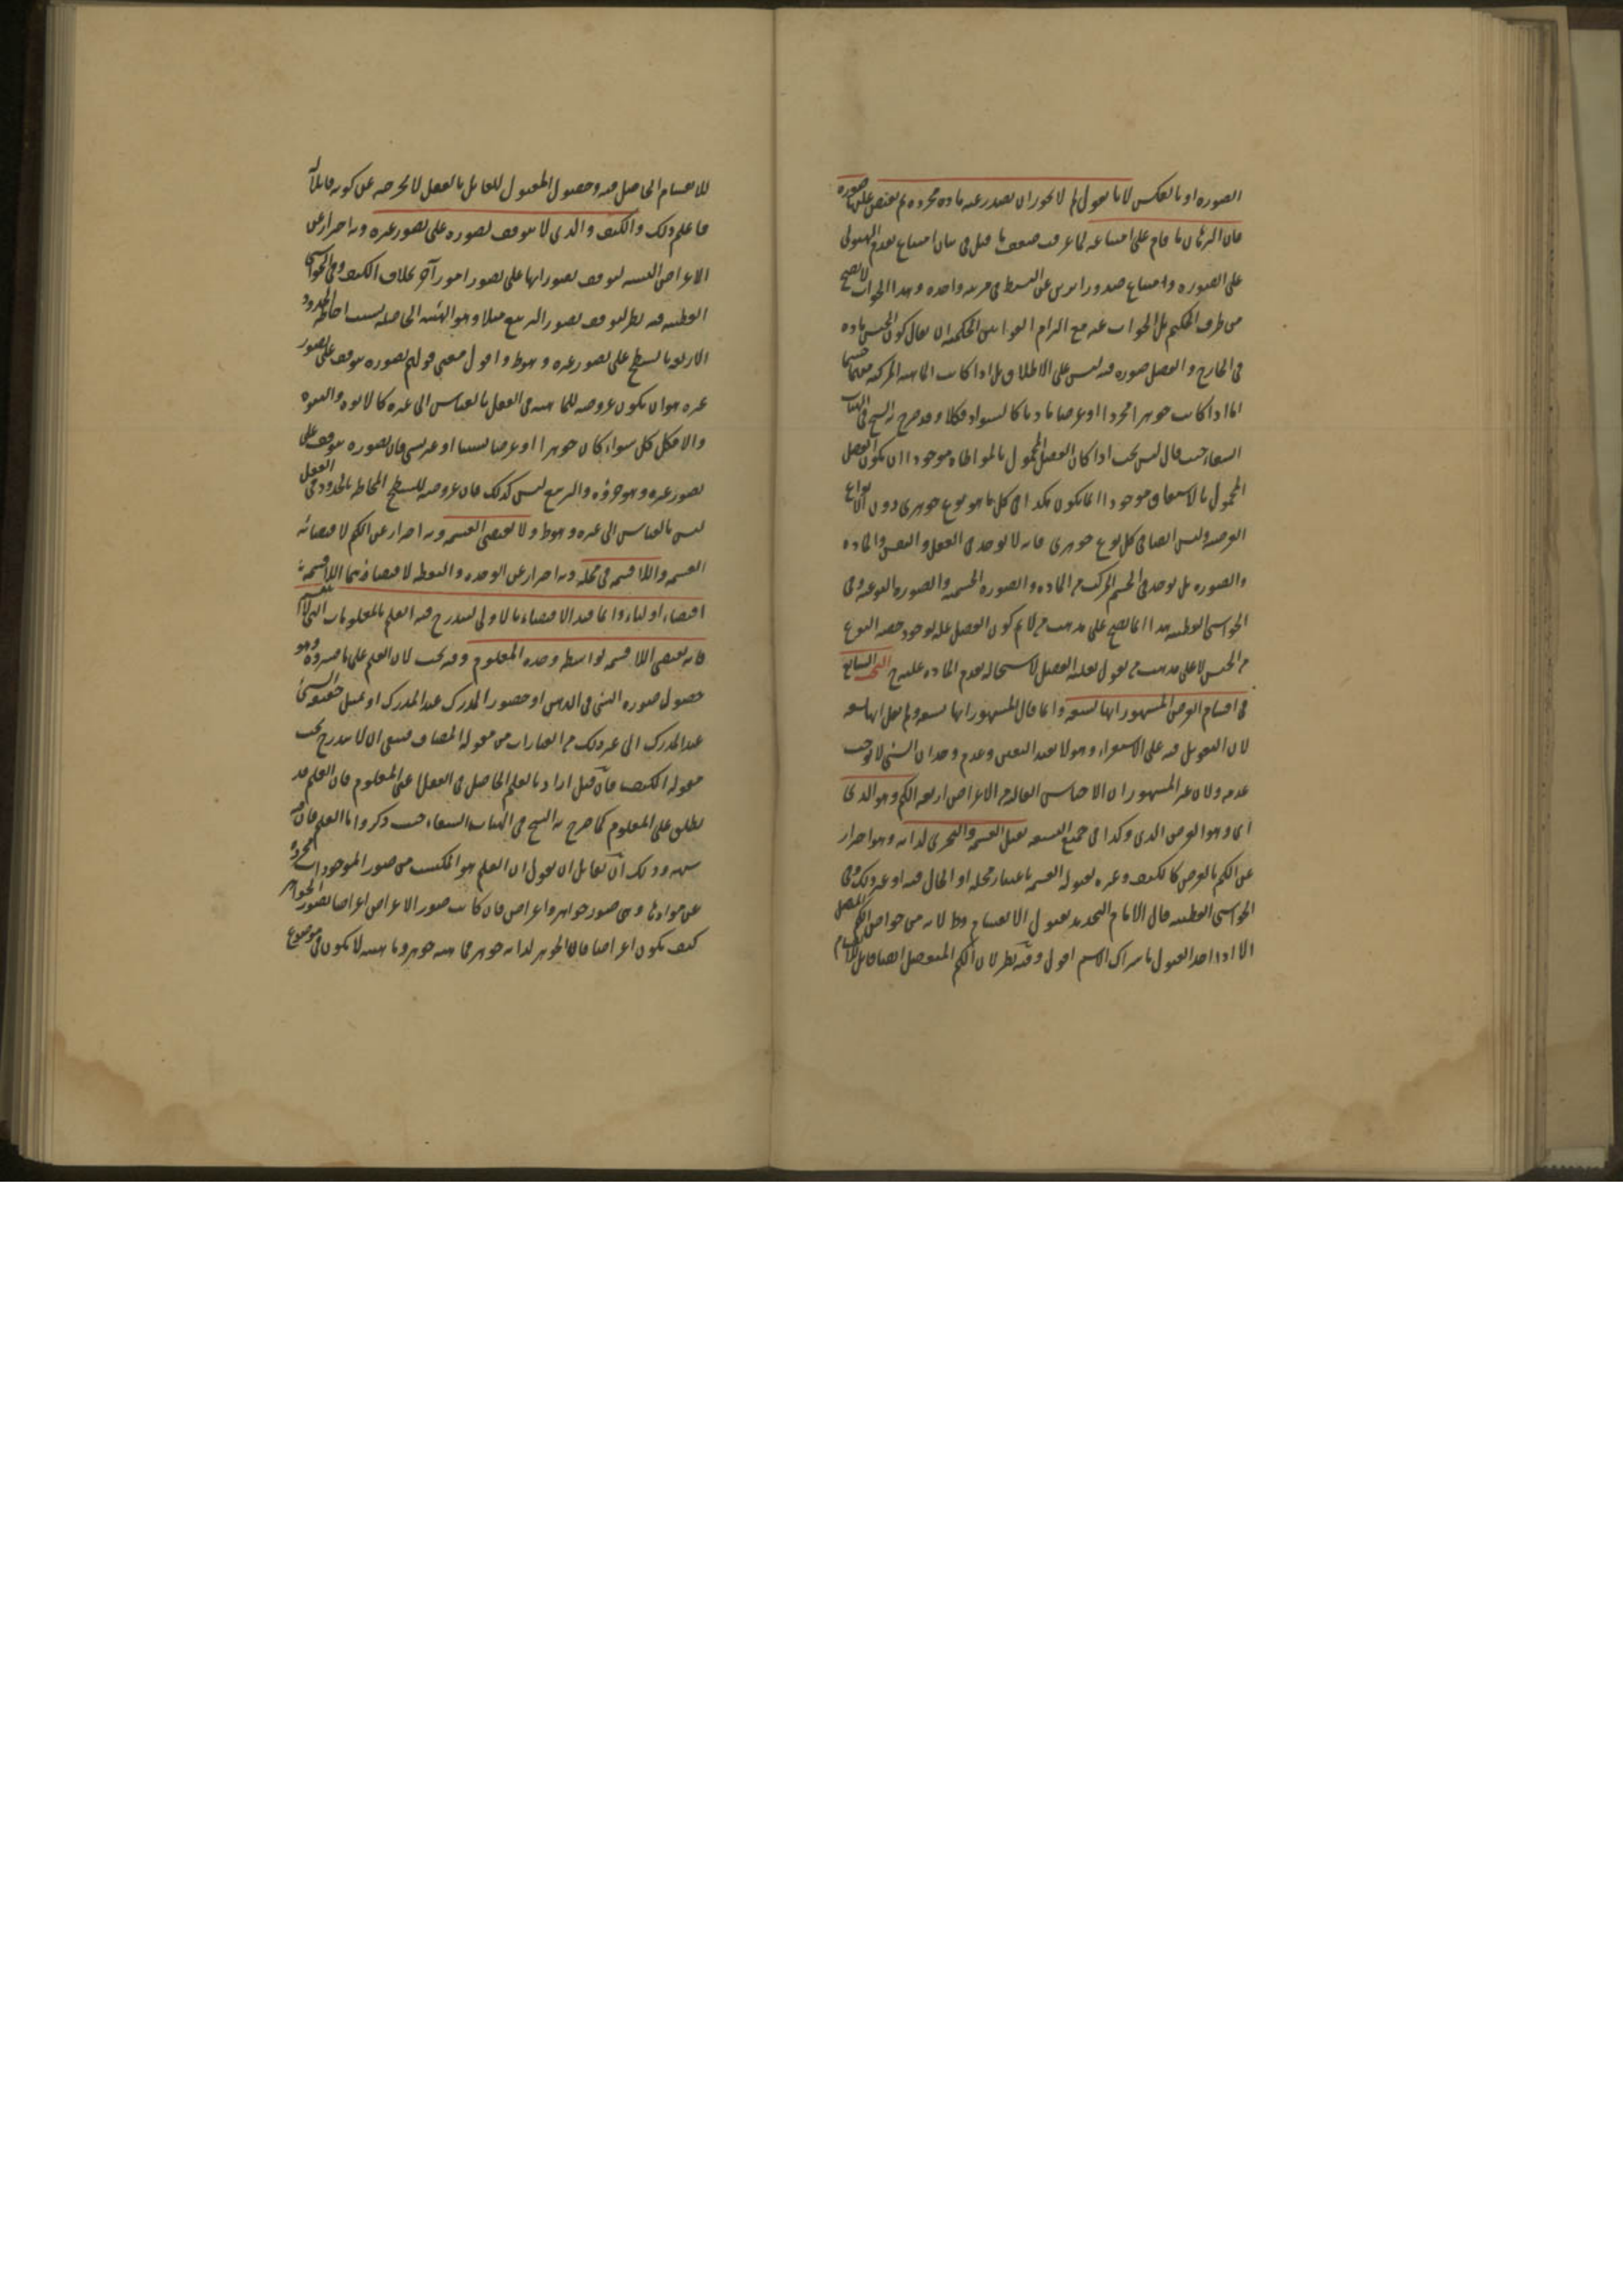 الصوره او بالعكس لانا نقول لم لا يجوز ان يصدر عنه ماده مجرده ثم يفيض عليها صوره
فان البرهان ما قام على امتناعه لما عرفت ضعف ما قيل في بيان امتناع تقدم الهيولى
على الصوره وامتناع صدور امرين عن البسيط في مرتبه واحده وهذا الجواب لا يصح
من طرف الحكيم بل الجواب عنه مع التزام القوانين الحكميه ان يقال كون الجنس ماده
في الخارج والفصل صوره فيه ليس على الاطلاق بل اذا كانت الماهيه المركبه منهما جسما
اما اذا كانت جوهرا مجردا او عرضا ماديا كالسواد فكلا وقد صرح به الشيخ في الهيات
الشفاء حيث قال ليس يجب اذا كان الفصل المحمول بالمواطاه موجودا ان يكون الفصل
المحمول بالاشتقاق موجودا انما يكون هكذا في كل ما هو نوع جوهري دون الانواع
العرضيه وليس ايضا في كل نوع جوهري فانه لا يوجد في العقل والنفس والماده
والصوره بل يوجد في الجسم المركب من الماده والصوره الجسميه والصوره النوعيه وفي
الحواشي القطبيه هذا انما يصح على مذهب من لا يرى كون الفصل عله لوجود حصه النوع
من الجنس لا على مذهب من يقول بعليه الفصل لاستحاله تقدم الماده عليه ح البحث السابع
في اقسام العرض المشهور انها تسعه وانما قال المشهور انها تسعه ولم يقل انها تسعه
لان التعويل فيه على الاستقراء وهو لا يفيد اليقين وعدم وجدان الشي لا يوجب
عدمه ولان غير المشهور ان الاجناس العاليه من الاعراض اربعه الكم وهو الذي
اي وهو العرض الذي وكذا في جميع التسعه يقبل القسمه والتجزي لذاته وهو احتراز
عن الكم بالعرض كالكيف وغيره لقبوله القسمه باعتبار محله او الحال فيه او غير ذلك وفي
الحواشي القطبيه قال الامام التحديد بقبول الانقسام خطا لانه من خواص الكم المتصل
الا اذا اخذ القبول باشتراك الاسم اقول وفيه نظر لان الكم المنفصل ايضا قابل للانقسام
للانقسام الحاصل فيه وحصول المقبول للقابل بالفعل لا يخرجه عن كونه قابلا له
فاعلم ذلك والكيف والذي لا يتوقف تصوره على تصور غيره وبه احتراز عن
الاعراض النسبيه لتوقف تصوراتها على تصور امور اخر بخلاف الكيف وفي الحواشي
القطبيه فيه نظر لتوقف تصور التربيع مثلا وهو الهيئه الحاصله بسبب احاطه الحدود
الاربعه بالسطح على تصور غيره وهو ط واقول معنى قولهم تصوره يتوقف على تصور
غيره هو ان يكون عروضه للماهيه في العقل بالقياس الى غيره كالابوه والبنوه
والا فكل كل سواء كان جوهرا او عرضا نسبيا او غير نسبي فان تصوره يتوقف على
تصور غيره وهو جزؤه والتربيع ليس كذلك فان عروضه للسطح المحاط بالحدود في العقل
ليس بالقياس الى غيره وهو ط ولا يقتضي القسمه وبه احتراز عن الكم لاقتضائه
القسمه واللاقسمه في محله وبه احتراز عن الوحده والنقطه لاقتضائهما اللاقسمه
اقتضاء اوليا وانما قيد الاقتضاء بالاولي ليندرج فيه العلم بالمعلومات التي لا تنقسم
فانه يقتضي اللاقسمه بواسطه وحده المعلوم وفيه بحث لان العلم على ما فسروه وهو
حصول صوره الشي في الذهن او حضور المدرك عند المدرك او تمثل حقيقه الشي
عند المدرك الى غير ذلك من العبارات من مقوله المضاف فينبغي ان لا يندرج تحت
مقوله الكيف فان قيل اراد بالعلم الحاصل في العقل اعني المعلوم فان العلم قد
يطلق على المعلوم كما صرح به الشيخ في الهيات الشفاء حيث ذكر واما العلم فان فيه
شبهه وذلك ان لقائل ان يقول ان العلم هو المكتسب من صور الموجودات مجرده
عن موادها وهي صور جواهر واعراض فان كانت صور الاعراض اعراضا فصور الجواهر
كيف يكون اعراضا فان الجوهر لذاته جوهر فماهيته جوهر وماهيته لا يكون في موضوع